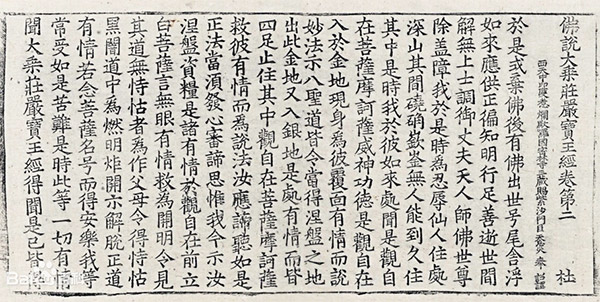 佛說大乘莊嚴寶王經卷第二 杜
西天中印度惹爛馱囉國密林寺三藏賜紫沙門臣天息災奉 詔譯
於是式棄佛後有佛出世号尾舍浮
如來應供正徧知明行足善逝世間
解無上士調御丈夫天人師佛世尊
除盖障我於是時為忍辱仙人住處
深山其間磽确嶔崟無人能到久住
其中是時我於彼如來處聞是觀自
在菩薩摩訶薩威神功德是觀自在
入於金地現身為彼覆面有情而說
妙法示八聖道皆令當得涅盤之地
出此金地又入銀地是處有情而皆
四足止住其中觀自在菩薩摩訶薩
救彼有情而為說法汝應諦聽如是
正法當須發心審諦思惟我今示汝
涅盤資糧是諸有情於觀自在前立
白菩薩言無眼有情救為開明令見
其道無恃怙者為作父母令得恃怙
黑闇道中為燃明炬開示解脫正道
有情若念菩薩名号而得安樂我等
常受如是苦難是時此等一切有情
聞大乘莊嚴寶王經得聞是已皆
Baidu百科